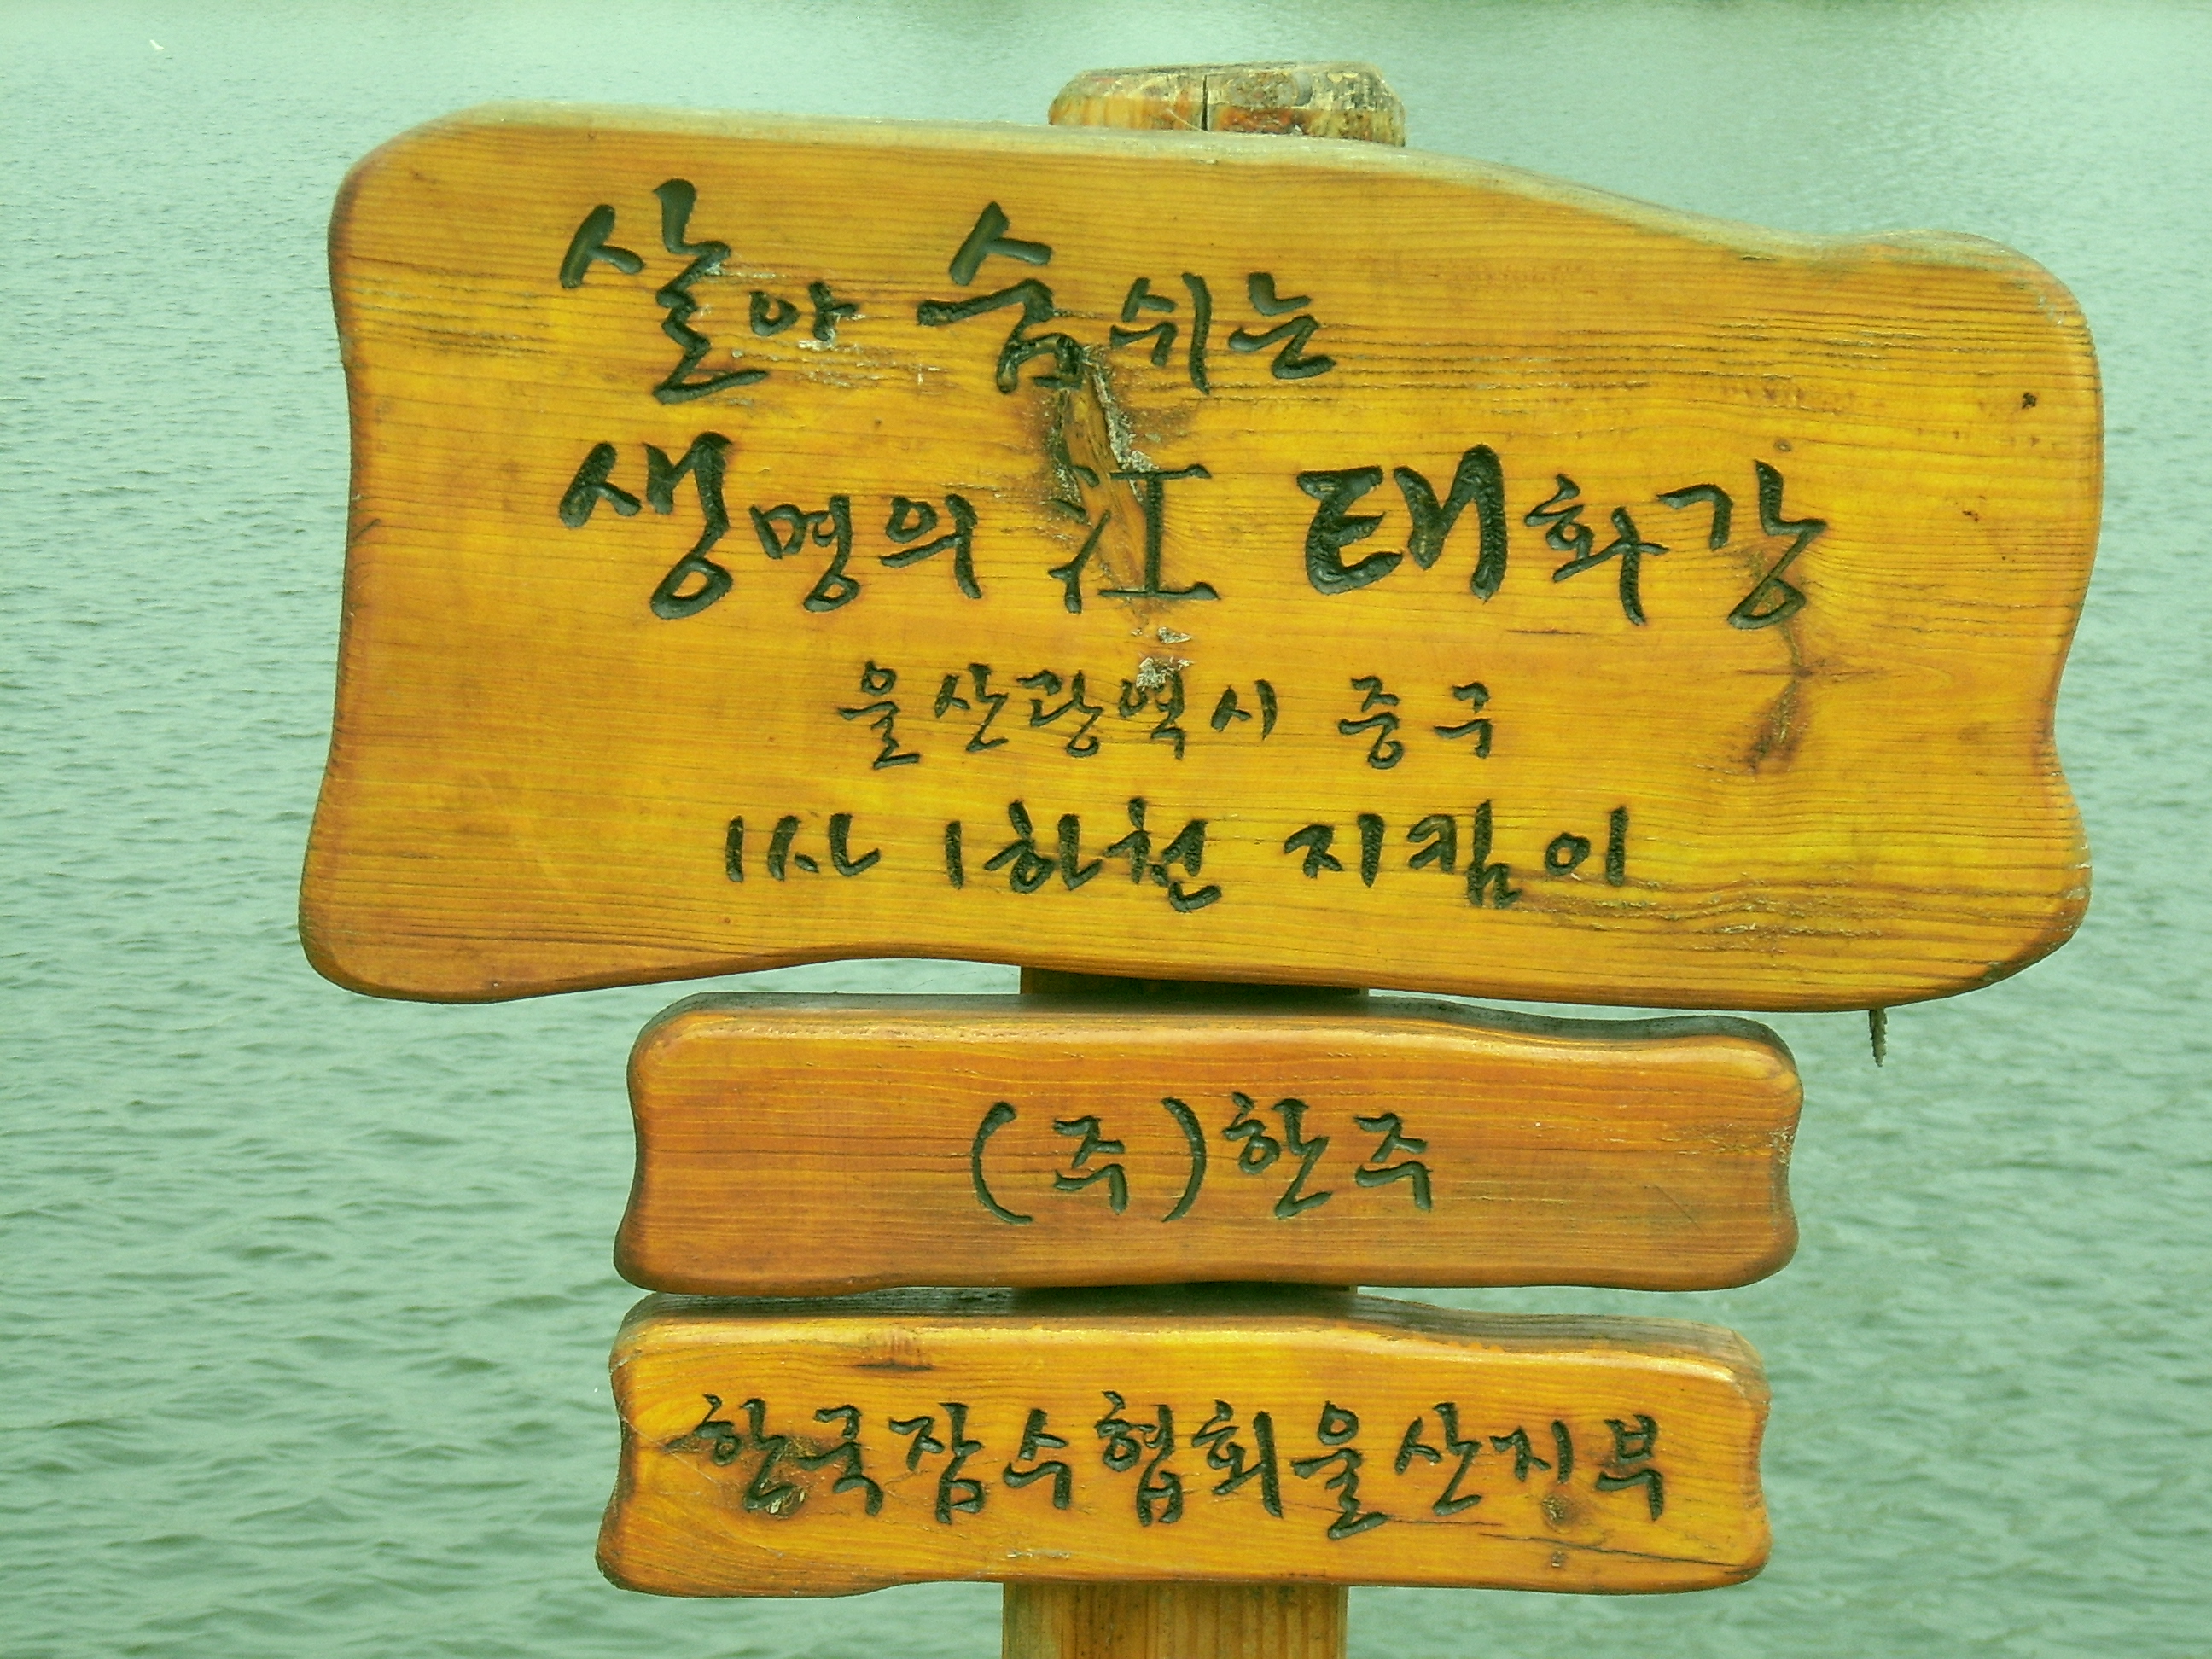 살아 숨쉬는
생명의 江 태화강
울산광역시 중구
1사 1하천 지킴이
(주)한주
한국잠수협회울산지부